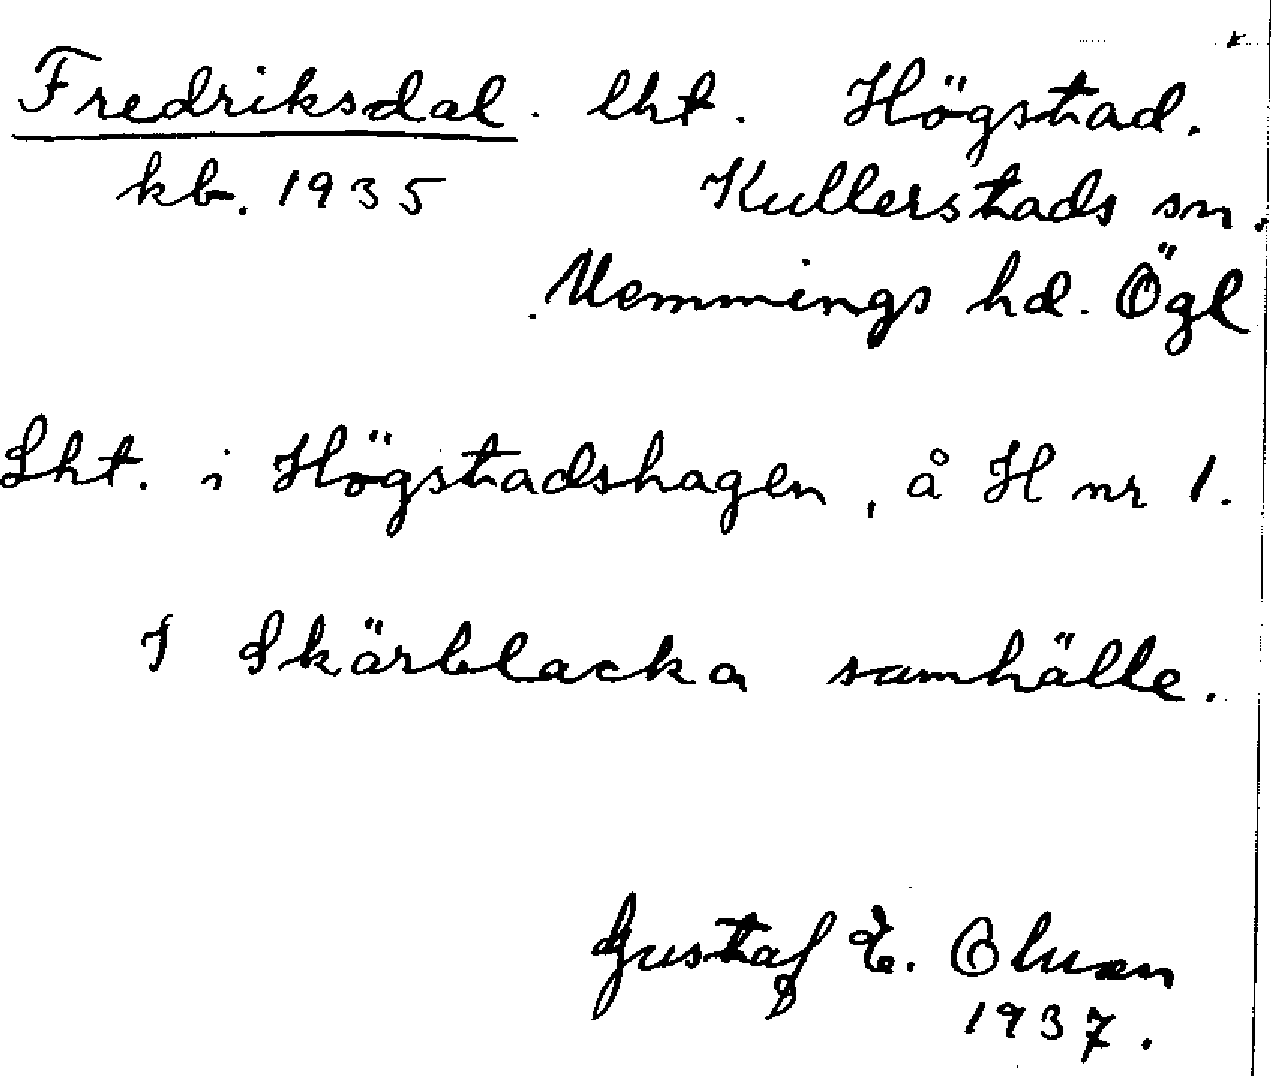 Fredriksdal. lht. Högstad.
kb. 1935 Kullerstads sn.
Memmings hd. Ögl
Lht. i Högstadshagen, å H nr 1.
I Skärblacka samhälle.
Gustaf E. Olsson
1937.